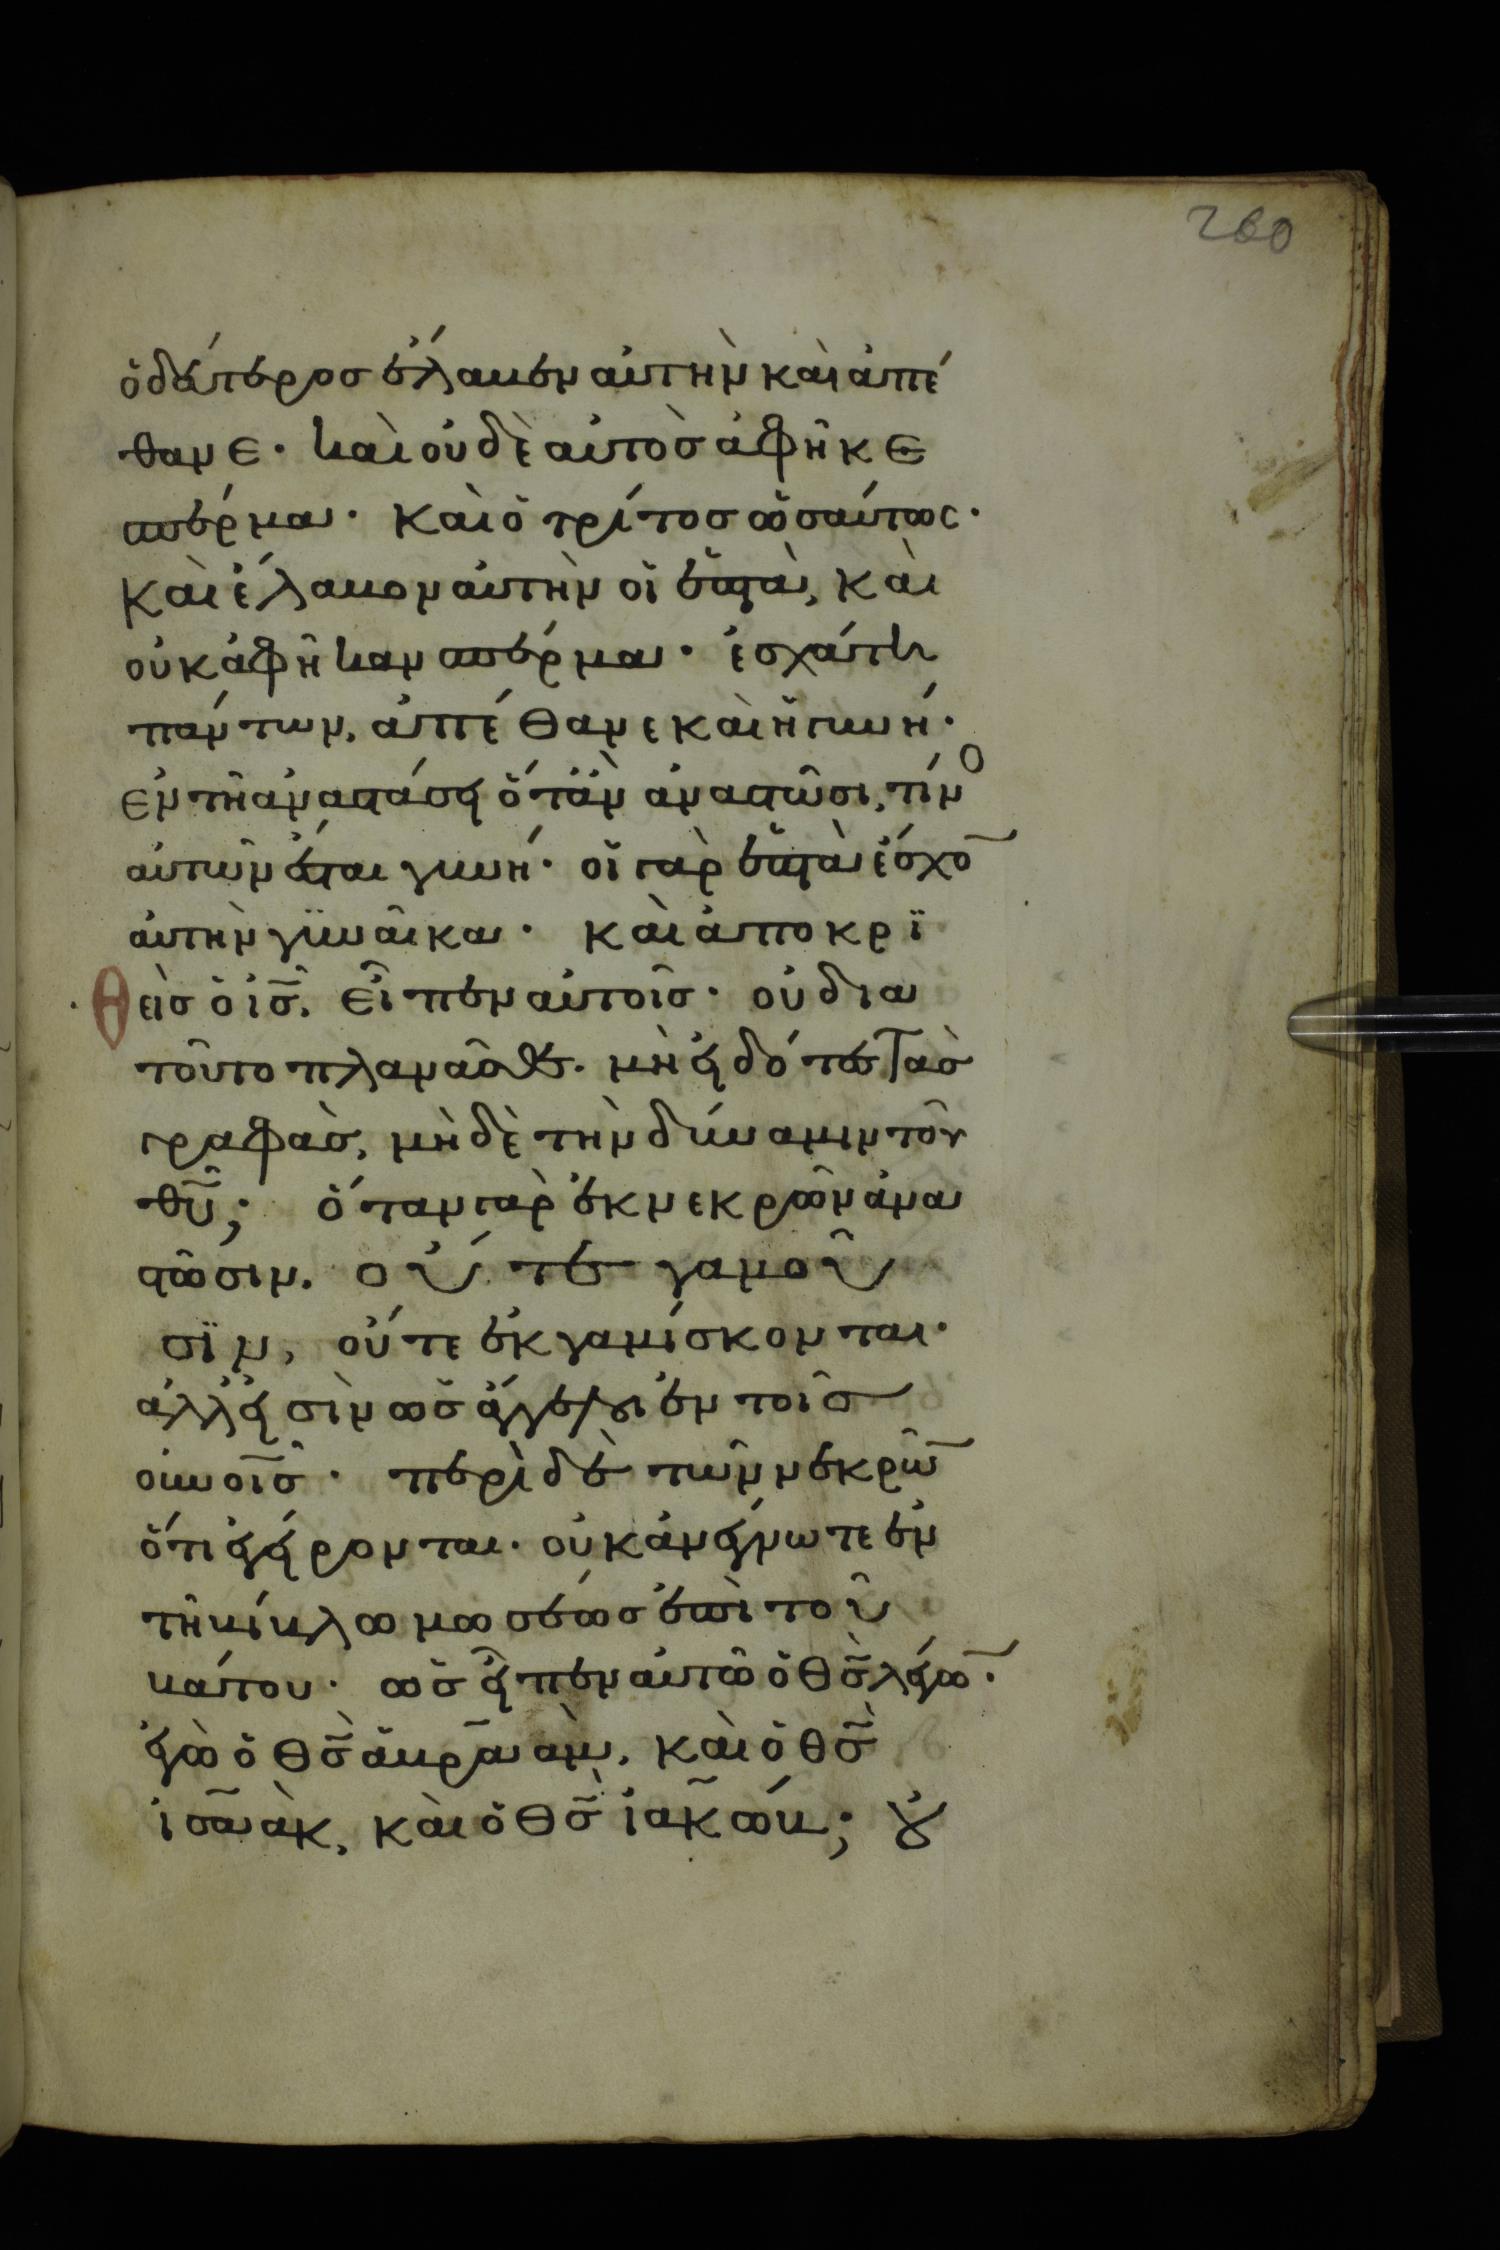 260
ὁ δεύτερος ἔλαβεν αὐτὴν καὶ ἀπέ
θανε· καὶ οὐδὲ αὐτὸς ἀφῆκε
σπέρμα· καὶ ὁ τρίτος ὡσαύτως·
καὶ ἔλαβον αὐτὴν οἱ ἑπτὰ, καὶ
οὐκ ἀφῆκαν σπέρμα· ἐσχάτη
πάντων, ἀπέθανε καὶ ἡ γυνή·
ἐν τῆ ἀναστάσει ὅτὰν ἀναστῶσι, τίνο
αὐτῶν ἔσται γυνή· οἱ γὰρ ἑπτὰ ἔσχο̄
αὐτὴν γϋναῖκα· καὶ ἀποκρϊ
θεὶς ὁ ις̄, εἶπεν αὐτοῖς· οὐ δια
τοῦτο πλανᾶσθε· μὴ εἰδότες τὰς
γραφὰς, μὴ δὲ τὴν δύναμιν τοῦ
θῡ; ὅταν γὰρ ἐκ νεκρῶν ἀνα
στῶσιν. οὔτε γαμοῦ
σϊν, οὔτε ἐκγαμίσκονται·
ἀλλ εἰσὶν ὡς ἄγγελοι ἐν τοῖς
οὐνοῖς̄· περὶ δὲ τῶν νεκρῶ̄
ὅτι ἐγείρονται· οὐκ ἀνέγνωτε ἐν
τῆ βίβλω μωσέως ἐπὶ τοῦ
βάτου· ὡς εἶπεν αὐτῶ ὁ θς̄ λέγω̄·
ἐγὼ ὁ θς̄ ἁβρᾱὰμ, καὶ ὁ θς̄
ἰσᾱὰκ, καὶ ὁ θς̄ ἰακ̄ώβ; οὐ